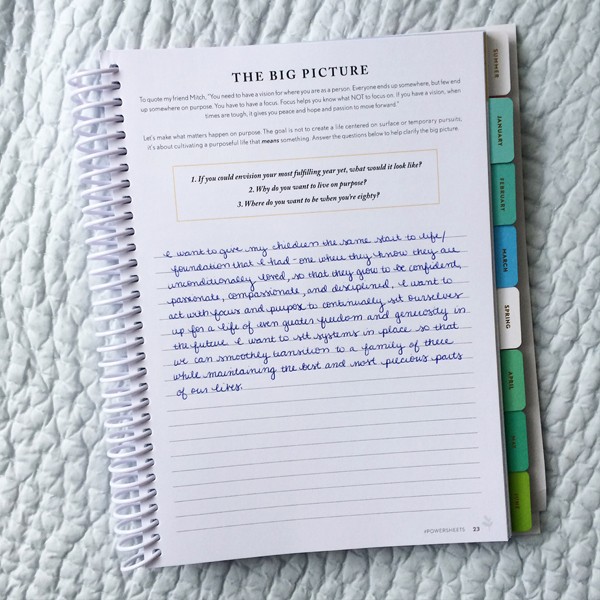 THE BIG PICTURE
To quote my friend Mitch, "You need to have a vision for where you are as a person. Everyone ends up somewhere, but few end
up somewhere on purpose. You have to have a focus. Focus helps you know what NOT to focus on. If you have a vision, when
times are tough, it gives you peace and hope and passion to move forward."
Let's make what matters happen on purpose. The goal is not to create a life centered on surface or temporary pursuits,
it's about cultivating a purposeful life that means something. Answer the questions below to help clarify the big picture.
1. If you could envision your most fulfilling year yet, what would it look like?
2. Why do you want to live on purpose?
3. Where do you want to be when you're eighty?
I want to give my children the same start to life/
foundation that I had - one where they know they are
unconditionally loved, so that they grow to be confident,
passionate, compassionate, and disciplined. I want to
act with focus and purpose to continually set ourselves
up for a life of even greater freedom and generosity in
the future. I want to set systems in place so that
we can smoothly transition to a family of three
while maintaining the best and most precious parts
of our lives.
#POWERSHEETS 23
SUMMER
JANUARY
FEBRUARY
MARCH
SPRING
APRIL
MAY
JUNE